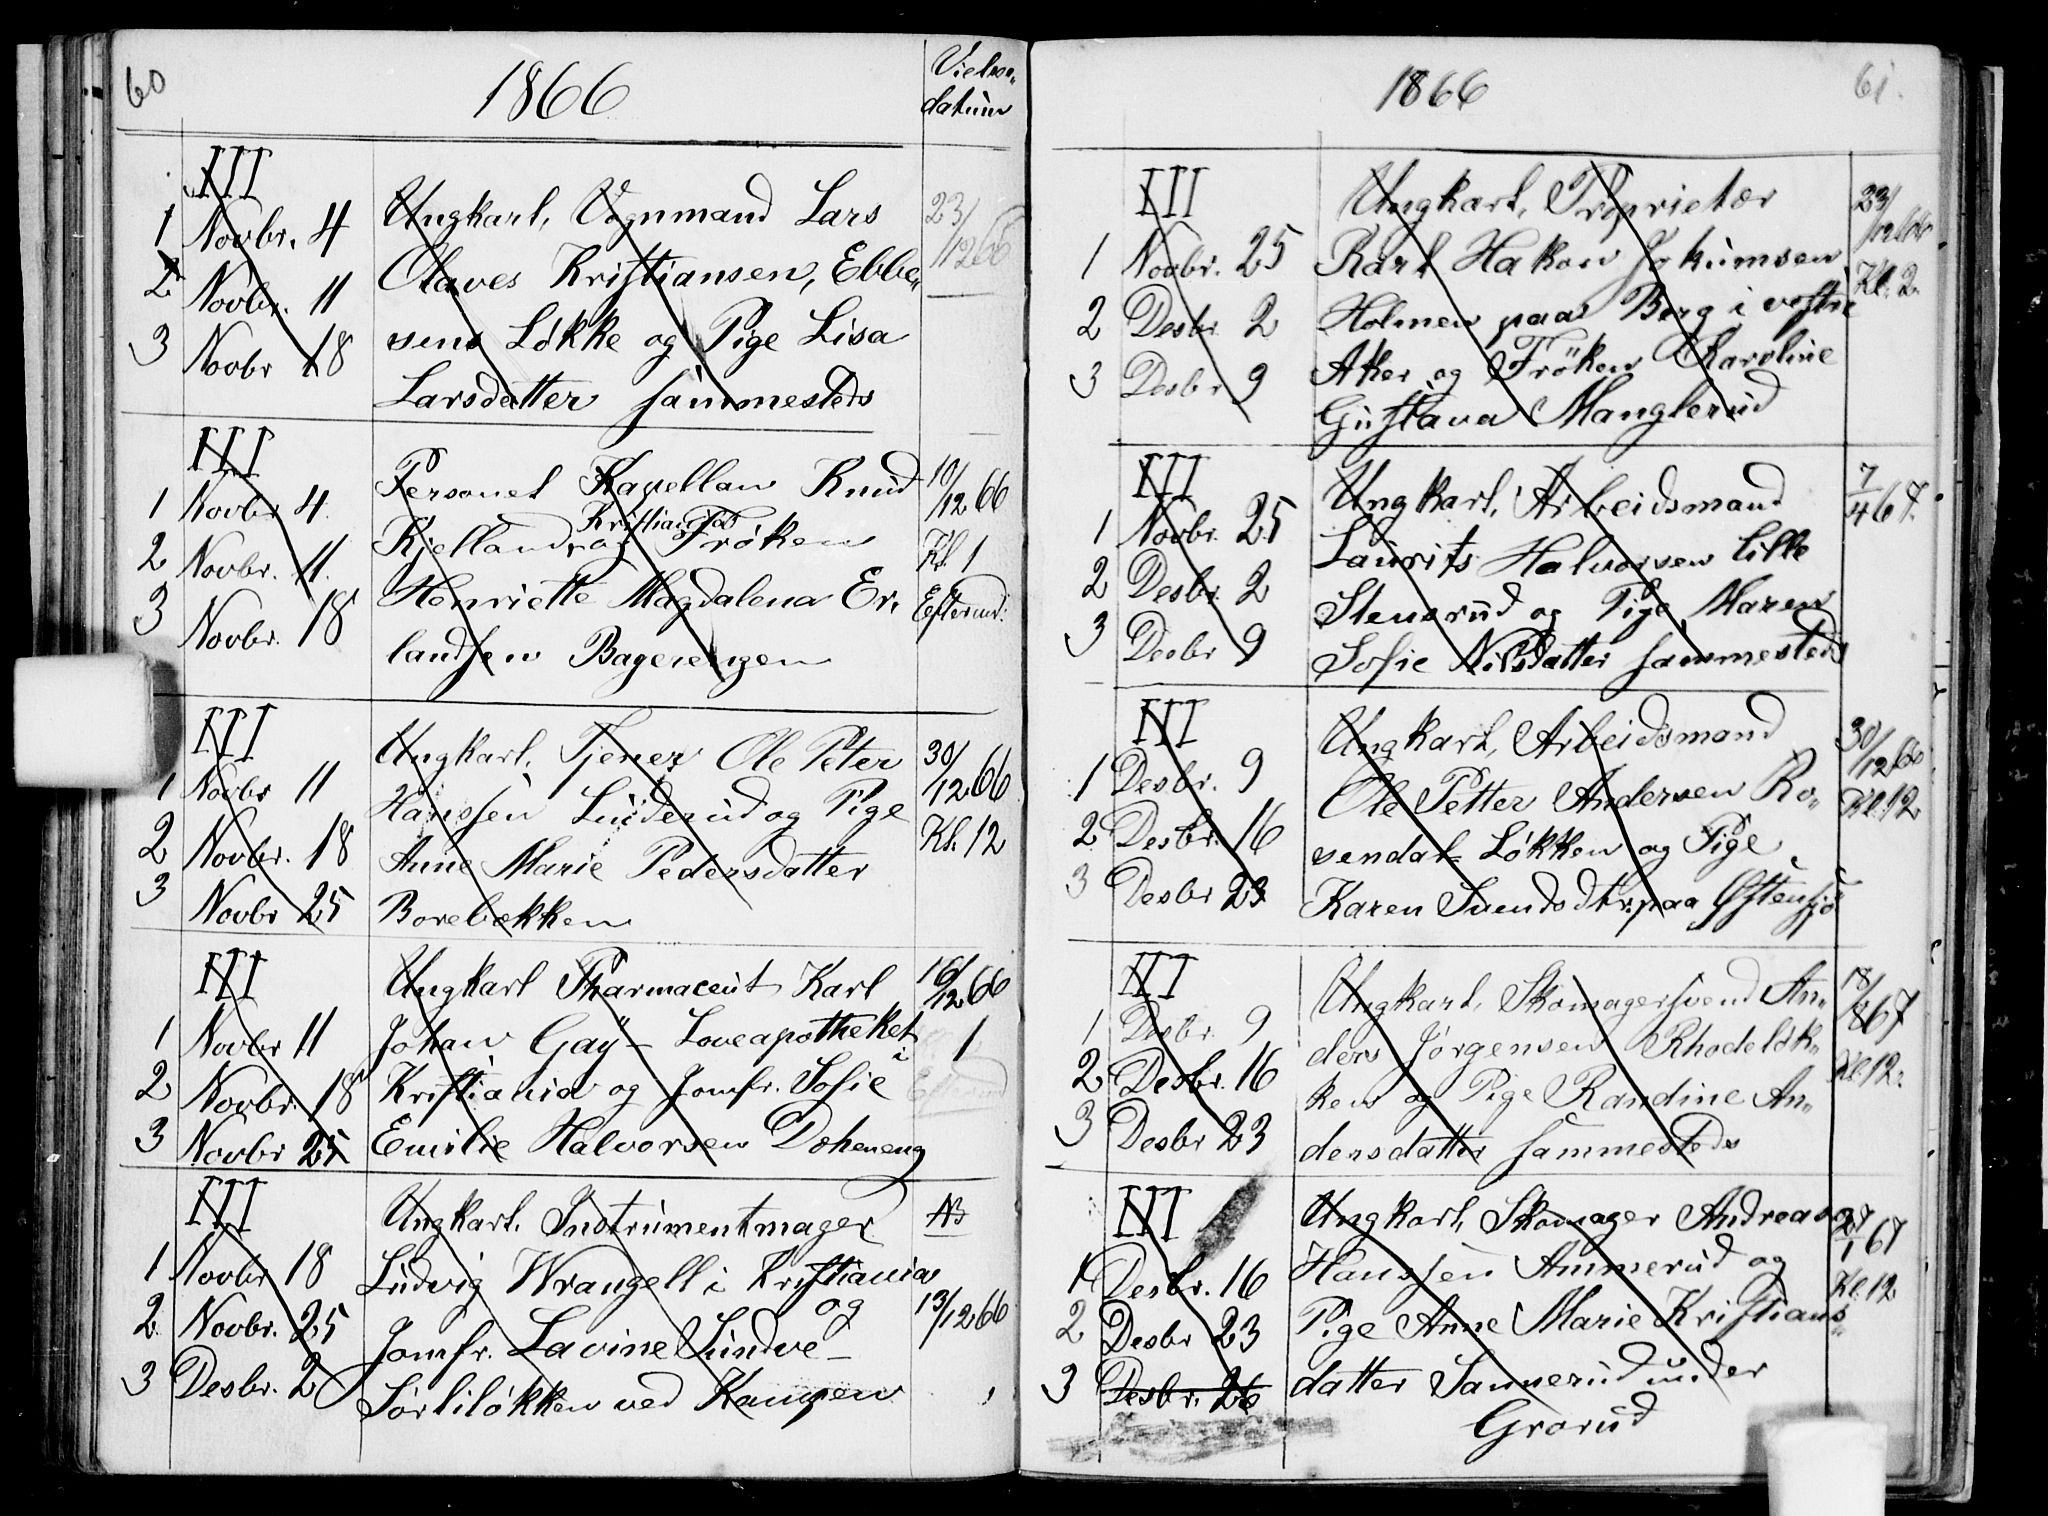 60
1866
Vielses-
datum
III
1 Novbr. 4 Ungkarl, Vognmand Lars 23/12 66
Olaves Kristiansen, Ebbe-
2 Novbr. 11 sens Løkke og Pige Lisa
3 Novbr 18 Larsdatter sammesteds
III
Personel Kapellan Knud 10/12 66
1 Novbr 4. Kristiansf
Kjelland, og Frøken Kl. 1
2 Novbr. 11. Henriette Magdalena Er- Eftermd:
3 Novbr. 18 landsen Bagerengen
III
Ungkarl. Tjener Ole Peter 30/12 66
1 Novbr 11 Hanssen Linderud og Pige Kl. 12
2 Novbr. 18 Anne Marie Pedersdatter
3 Novbr 25 Borebækken
III
Ungkarl Pharmaceut Karl 16/12 66
1 Novbr 11 Johan Gaÿ - Loveapotheket i 1
2 Novbr. 18 Kristiania og Jomfr. Sofie Eftermd
3 Novbr 25 Emilie Halvorsen Døheneng
III
Ungkarl. Instrumentmager NB
1 Novbr 18 Ludvig Wrangell i Kristiania
og 13/12 66
2. Novbr. 25 Jomfr. Lavine Sundve-
3 Desbr. 2 Sørliløkken ved Kampen
1866
61.
III
Ungkarl, Proprietær 23/12 66
1 Novbr. 25 Karl Hakon Jokumsen Kl. 2.
2 Desbr. 2 Holmen paa Berg i vestre
3 Desbr 9 Aker og Frøken Karoline
Gustava Manglerud
III
Ungkarl, Arbeidsmand 7/4 67.
1 Novbr. 25 Laurits Halvorsen Lille
2 Desbr. 2 Stensrud og Pige Maren
3 Desbr 9 Sofie Nilsdatter sammesteds
III
Ungkarl, Arbeidsmand 30/12 66
1 Desbr. 9 Ole Petter Andersen Ro- Kl. 12
2 Desbr. 16 sendal-Løkken og Pige
3 Desbr 23 Karen Svendsdtr. paa Østensjø
III
Ungkarl. Skomagersvend An- 67
1 Desbr. 9 ders Jørgensen Rhodeløk- Kl 12.
2 Desbr. 16 ken og Pige Randine An-
3 Desbr 23 dersdatter sammesteds
III
Ungkarl, Skomager Andreas 27/1 67
1 Desbr. 16 Hanssen Ammerud og Kl. 12
2 Desbr 23 Pige Anne Marie Kristians-
3 Desbr. 26 datter Sannerud under
Grorud